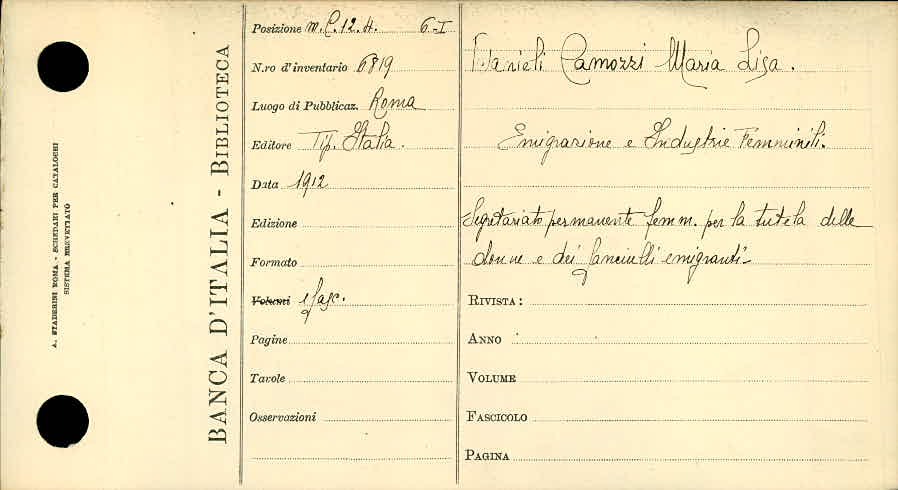 A. STADERINI ROMA - SCHEDARI PER CATALOGHI
SISTEMA BREVETTATO
BANCA D'ITALIA - BIBLIOTECA
Posizione m.C.12.H. 6-I
N.ro d'inventario 6819
Luogo di Pubblicaz. Roma
Editore Tip. Italia.
Data 1912
Edizione
Formato
Volumi 1 fasc.
Pagine
Tavole
Osservazioni
Danieli Camozzi Maria Lisa.
Emigrazione e Industrie Femminili.
Segretariato permanente femm. per la tutela delle
donne e dei fanciulli emigranti-
RIVISTA:
ANNO
VOLUME
FASCICOLO
PAGINA